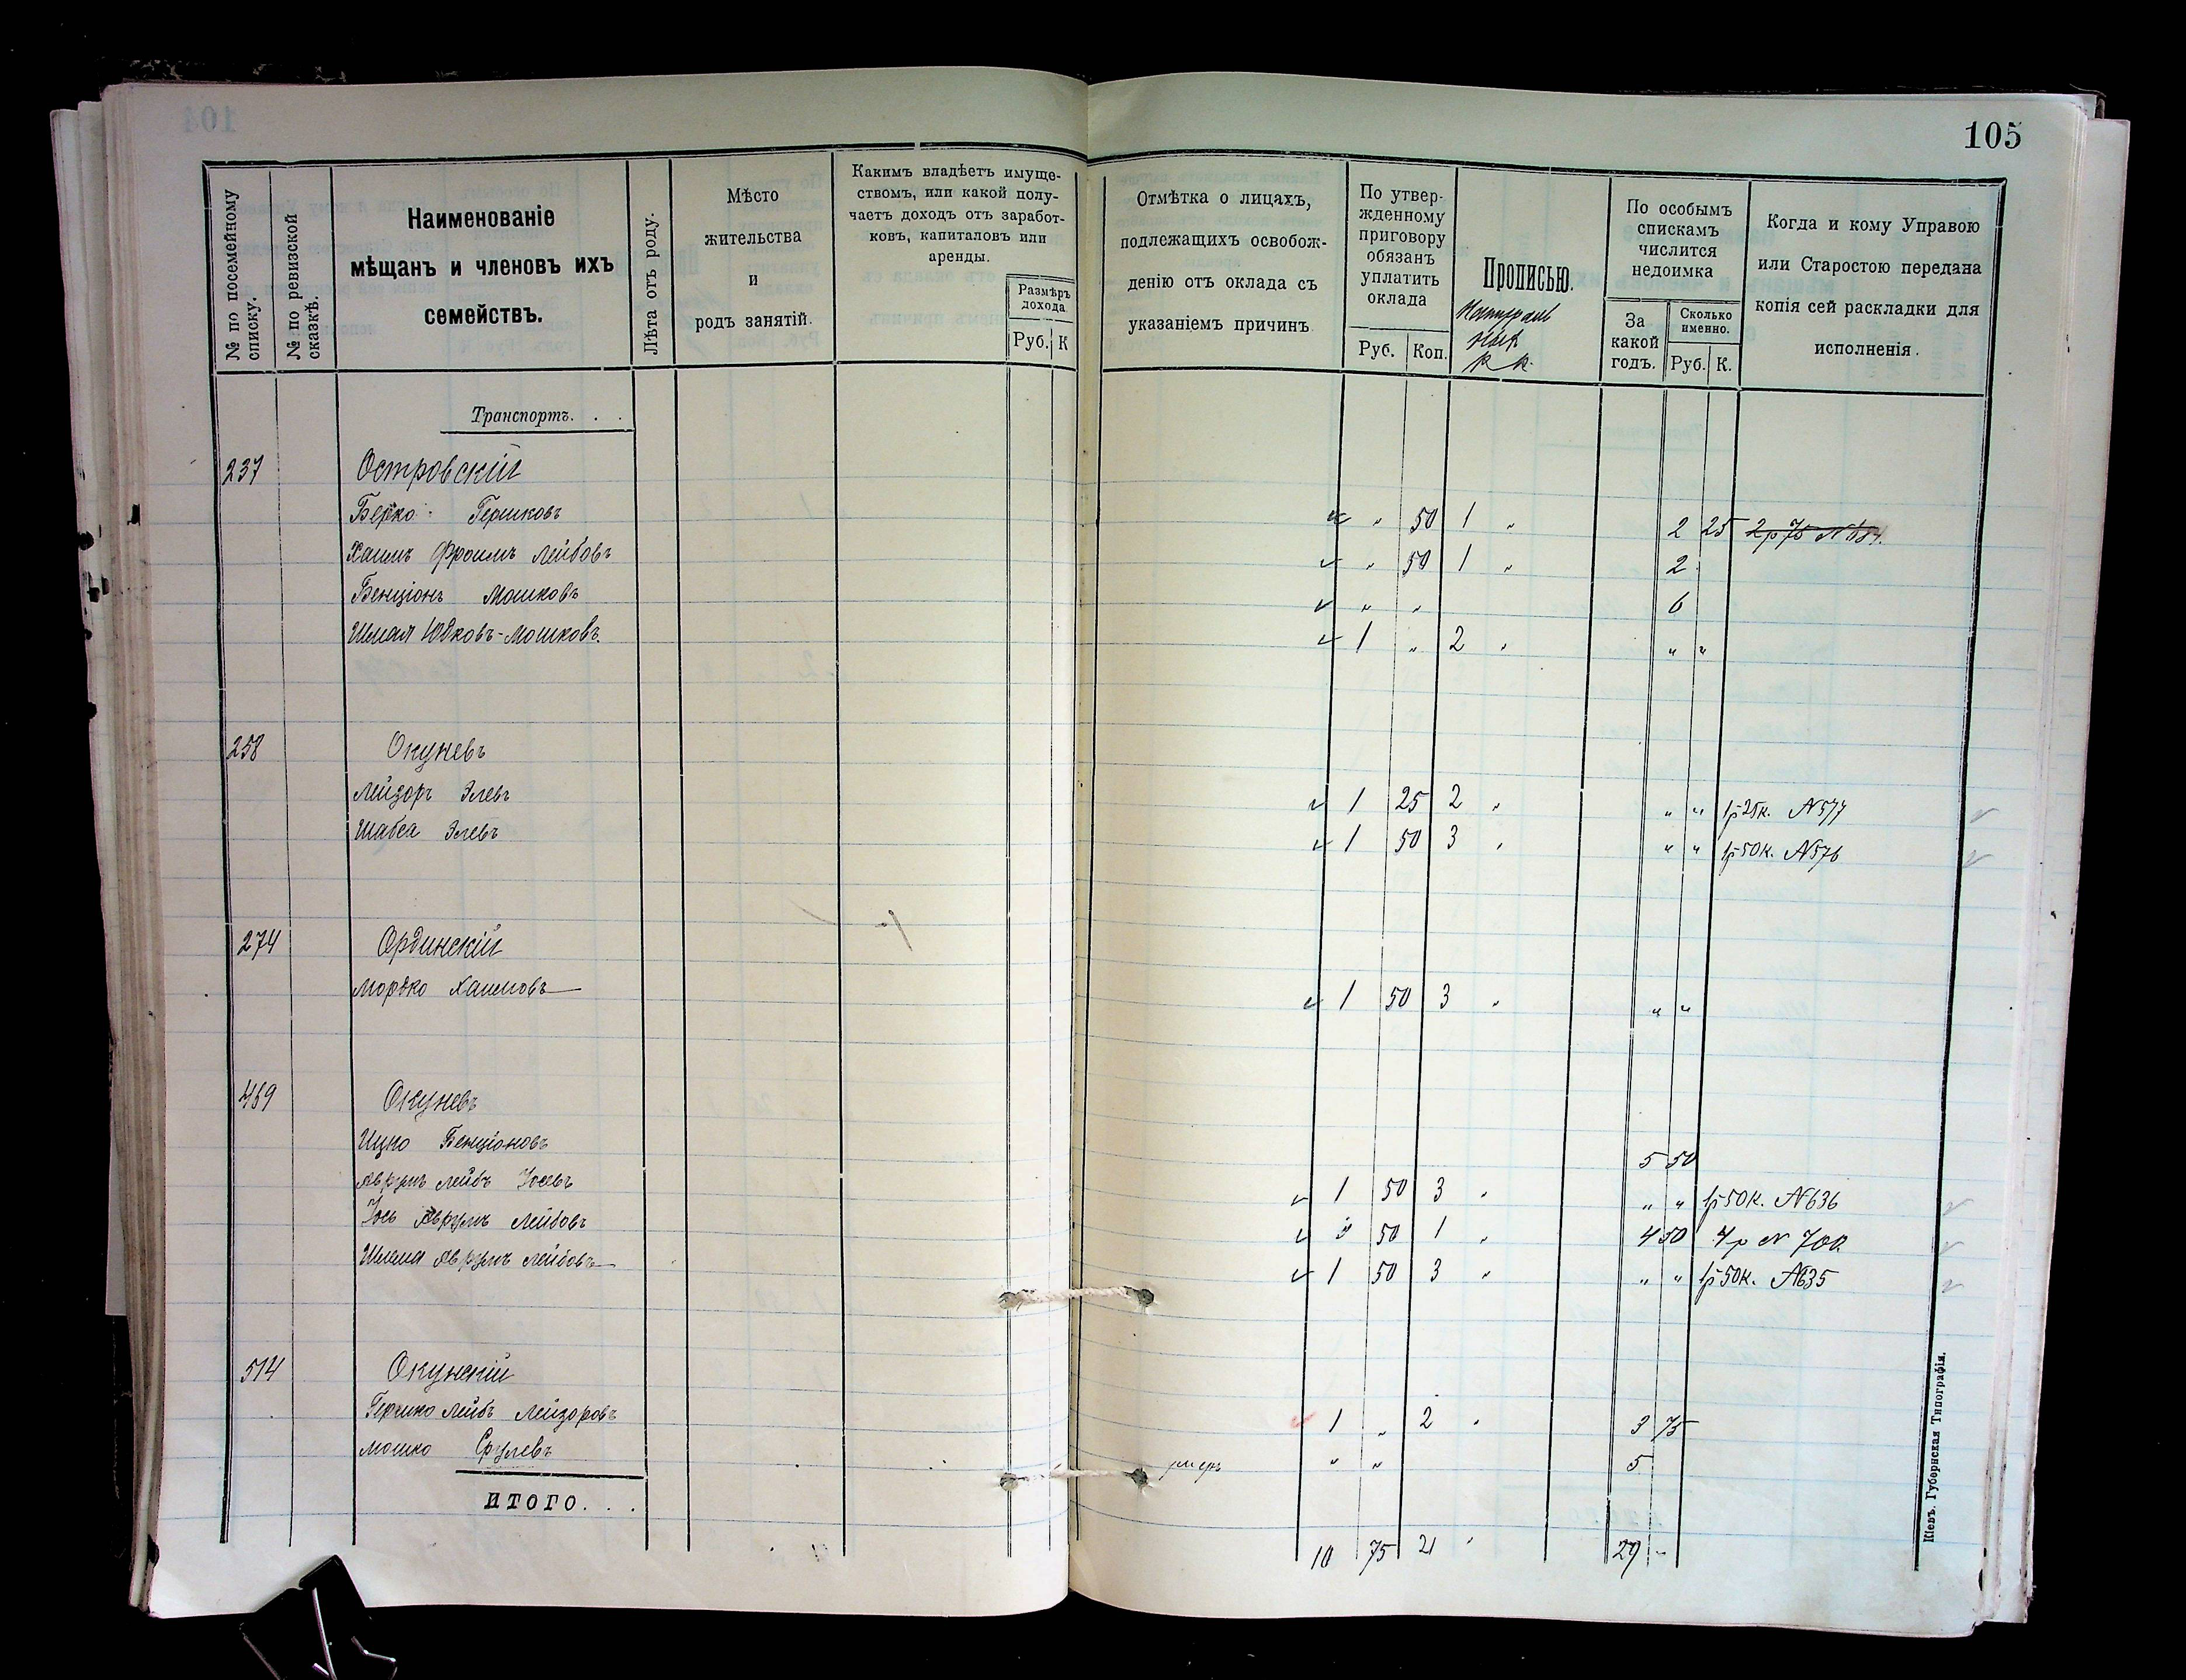 105
№ по посемейному списку.
№ по ревизской сказкѣ.
Наименованіе
мѣщанъ и членовъ ихъ
семействъ.
Лѣта отъ роду.
Мѣсто
жительства
и
родъ занятій.
Какимъ владѣетъ имуще-
ствомъ, или какой полу-
чаетъ доходъ отъ заработ-
ковъ, капиталовъ или
аренды.
Размѣръ
дохода
Руб. К
Отмѣтка о лицахъ,
подлежащихъ освобож-
денію отъ оклада съ
указаніемъ причинъ
По утвер-
жденному
приговору
обязанъ
уплатить
оклада
Руб. Коп.
Прописью.
По особымъ
спискамъ
числится
недоимка
За
какой
годъ.
Сколько
именно.
Руб. К.
Когда и кому Управою
или Старостою передана
копія сей раскладки для
исполненія.
Транспортъ. . .
237 Островскій
Берко Гершковъ „ 50 1 „ 2 25 2р 75
Хаимъ Фроимъ Лейбовъ „ 50 1 „ 2
Бенціонъ Мошковъ „ „ 6
Шмая Юдковъ-Мошковъ. 1 „ 2 „ „ „
258 Окуневъ
Лейзоръ Элевъ 1 25 2 „ „ „ 1р 25к. №577
Шабса Элевъ 1 50 3 „ „ „ 1р 50к. №576
274 Ординскій
Мордко Хаимовъ 1 50 3 „ „ „
459 Окуневъ
Ицко Бенціоновъ 5 50
Аврумъ Лейбъ Іосевъ 1 50 3 „ „ „ 1р 50к. №636
Іось Аврумъ Лейбовъ „ 50 1 „ 4 50 4р № 700
Шлема Аврумъ Лейбовъ 1 50 3 „ „ „ 1р 50к. №635
514 Окунскій
Гершко Лейбъ Лейзоровъ 1 „ 2 „ 3 75
Мошко Срулевъ умеръ „ „ 5
ИТОГО. . .
10 75 21 „ 29 „
Кіевъ. Губернская Типографія.